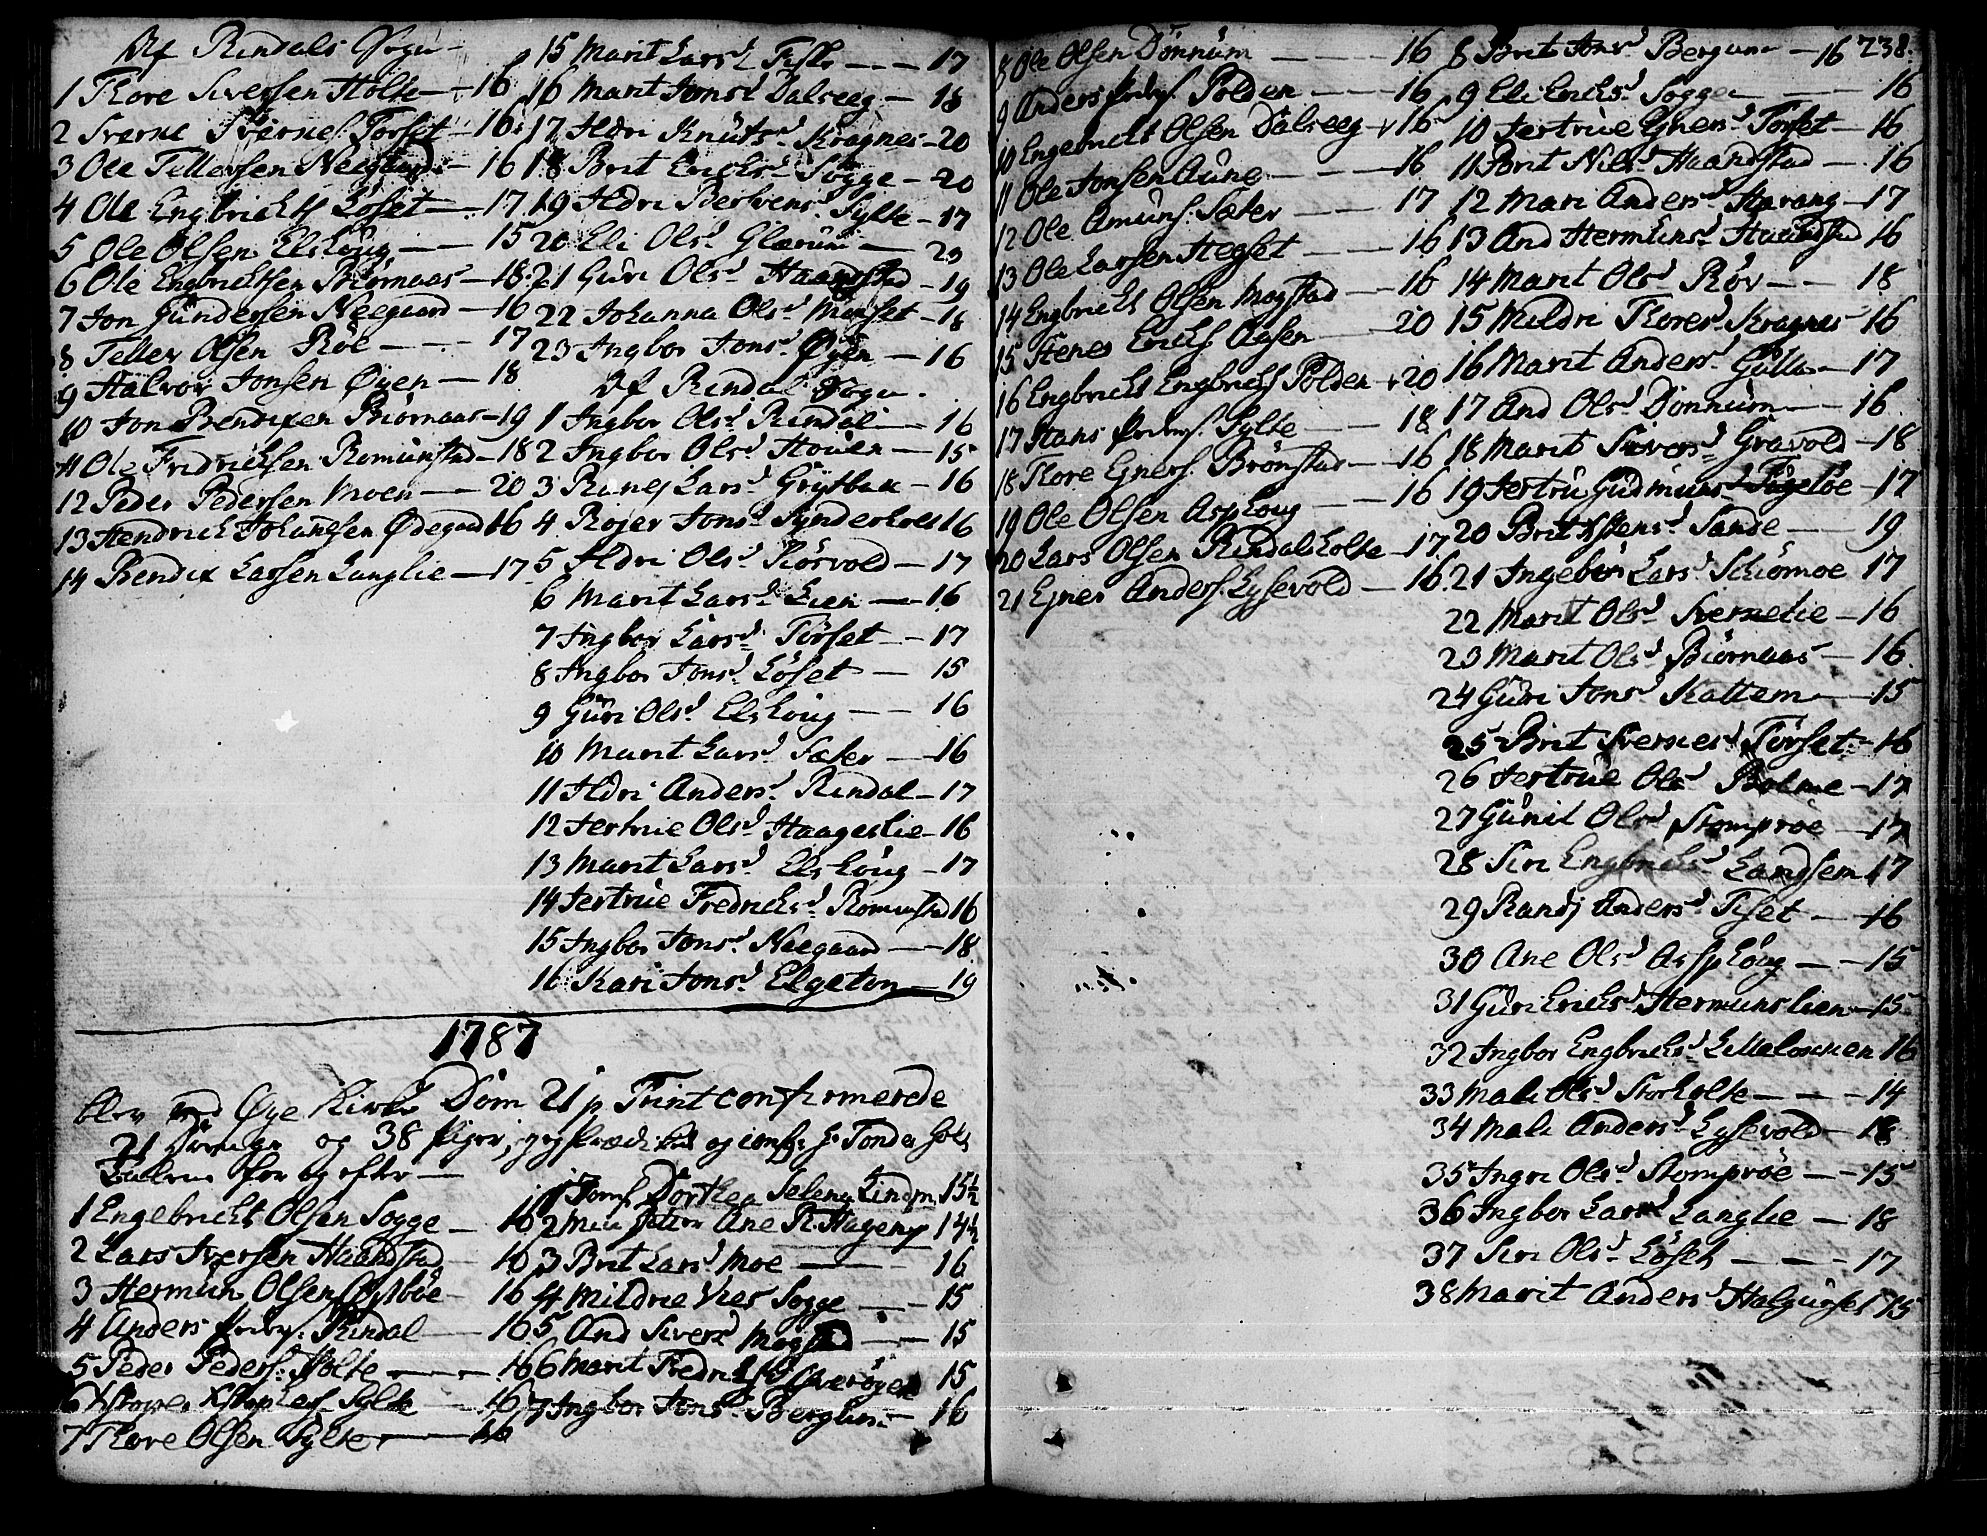 Af Rindals Sogn
1 Tore Siversen Holte — 16
2 Sverne Svernes. Torset — 16
3 Ole Tellefsen Neegaard — 16
4 Ole Engbrichts. Løset — 17
5 Ole Olsen Elshoug — 15
6 Ole Engbrichtsen Biørnaas — 18
7 Jon Gundersen Neegaard — 16
8 Tellev Olsen Røe — 17
9 Halvor Jonsen Øyen — 18
10 Jon Bendixen Biørnaas — 19
11 Ole Fridrichsen Romunstad — 18
12 Peder Pedersen Moen — 20
13 Hendrich Johansen Ødegaard 16
14 Bendix Larsen Langlie — 17
15 Marit Larsd. — 17
16 Marit Jonsd Dalseeg — 18
17 Ildri Knutsd. Kragnes — 20
18 Brit Ericksd. Sogge — 20
19 Ildri Bertvensd. Sylte — 17
20 Eli Olsd Glærum — 23
21 Guri Olsd Haandstad — 19
22 Johanna Olsd Muuset — 18
23 Ingbor Jonsd. Øyen — 16
Af Rindal Sogn.
1 Ingbor Olsd. Rindal — 16
2 Ingbor Olsd. Houen — 15
3 Ranej Larsd. Grytbak — 16
4 Rojer Jonsd. 16
5 Ildri Olsd. Kiørvold — 17
6 Marit Larsd. Lien — 16
7 Ingbor Larsd. Torset — 17
8 Ingbor Jonsd. Løset — 15
9 Guri Olsd. Elshoug — 16
10 Marit Larsd Sæter — 16
11 Ildri Andersd. Rindal — 17
12 Jertrue Olsd. Haageslie — 16
13 Marit Larsd. Elshoug — 17
14 Jertrue Fredrichsd. Romunstad 16
15 Ingbor Jonsd. Neegaard — 18
16 Kari Jonsd. Elgaton — 19
1787
blev ved Øye Kirke Dom 21 p Trint confirmerede
21 Drenge og 38 Piger, jeg prædiket og conf: Hr Tonder holt
Talen for og efter —
1 Engebricht Olsen Sogge — 16
2 Lars Iversen Haandstad — 16
3 Hermun Olsen Ostbøe — 16
4 Anders Peders. Rindal — 16
5 Peder Peders. Holte — 16
6 Sylte — 16
7 Tore Olsen Sylte — 16
1 Jomf. Dortea Selena Lindm. 15½
2 Min datter Ane R. Hagerup 14½
3 Brit Larsd Moe — 16
4 Mildrie Sogge — 15
5 And Siversd Mogstad — 15
6 Marit Fredrichsd 15
7 Ingbor Jonsd. Berglun — 16
8 Ole Olsen Dønnum — 16
9 Anders Peders. Polden — 16
10 Engebricht Olsen Dalseeg — 16
11 Ole Jonsen Aune — 16
12 Ole Amuns. Sæter — 17
13 Ole Larsen Hegset — 16
14 Engbricht Olsen Mogstad — 16
15 Stener Ericks Aasen — 20
16 Engbricht Engbrichts Polden — 20
17 Hans Peders. Sylte — 18
18 Tore Ejners. Brønstad — 16
19 Ole Olsen Asphoug — 16
20 Lars Olsen Rindalsholte — 17
21 Ejner Anders. Lysevold — 16
238.
8 Brit Jonsd Bergum — 16
9 Eli Ericksd. Sogge — 16
10 Jertrue Ejnersd. Torset — 16
11 Brit Nilsd. Haandstad — 16
12 Mari Andersd. Harang — 17
13 And Hermunsd. Haandstad 16
14 Marit Olsd Røv — 18
15 Mildri Toresd. Kragnes 16
16 Marit Andersd. Gulla — 17
17 And Olsd Dønnum — 16
18 Marit Siversd. Gravold — 18
19 Jertru Gudmunsd. Fugeløe — 17
20 Brit Stensd. Sande — 19
21 Ingebor Larsd. Schiømoe 17
22 Marit Olsd Svernelie — 16
23 Marit Olsd. Biørnaas — 16
24 Guri Jonsd Kattem — 15
25 Brit Svernesd. Torset — 16
26 Jertrue Olsd Bolme — 17
27 Gunil Olsd Stomprøe — 17
28 Siri Engbrichsd. Landsem 17
29 Randj Andersd. Tiset — 16
30 Ane Olsd Asphoug — 15
31 Guri Ericksd. Hermunslien — 15
32 Ingbor Engbrichsd. Lilleløkken 16
33 Mali Olsd Storholte — 14
34 Mali Andersd Lysevold — 18
35 Ingri Olsd. Stomprøe — 15
36 Ingbor Larsd Langlie — 18
37 Siri Olsd. Løset — 17
38 Marit Andersd Halguset 15